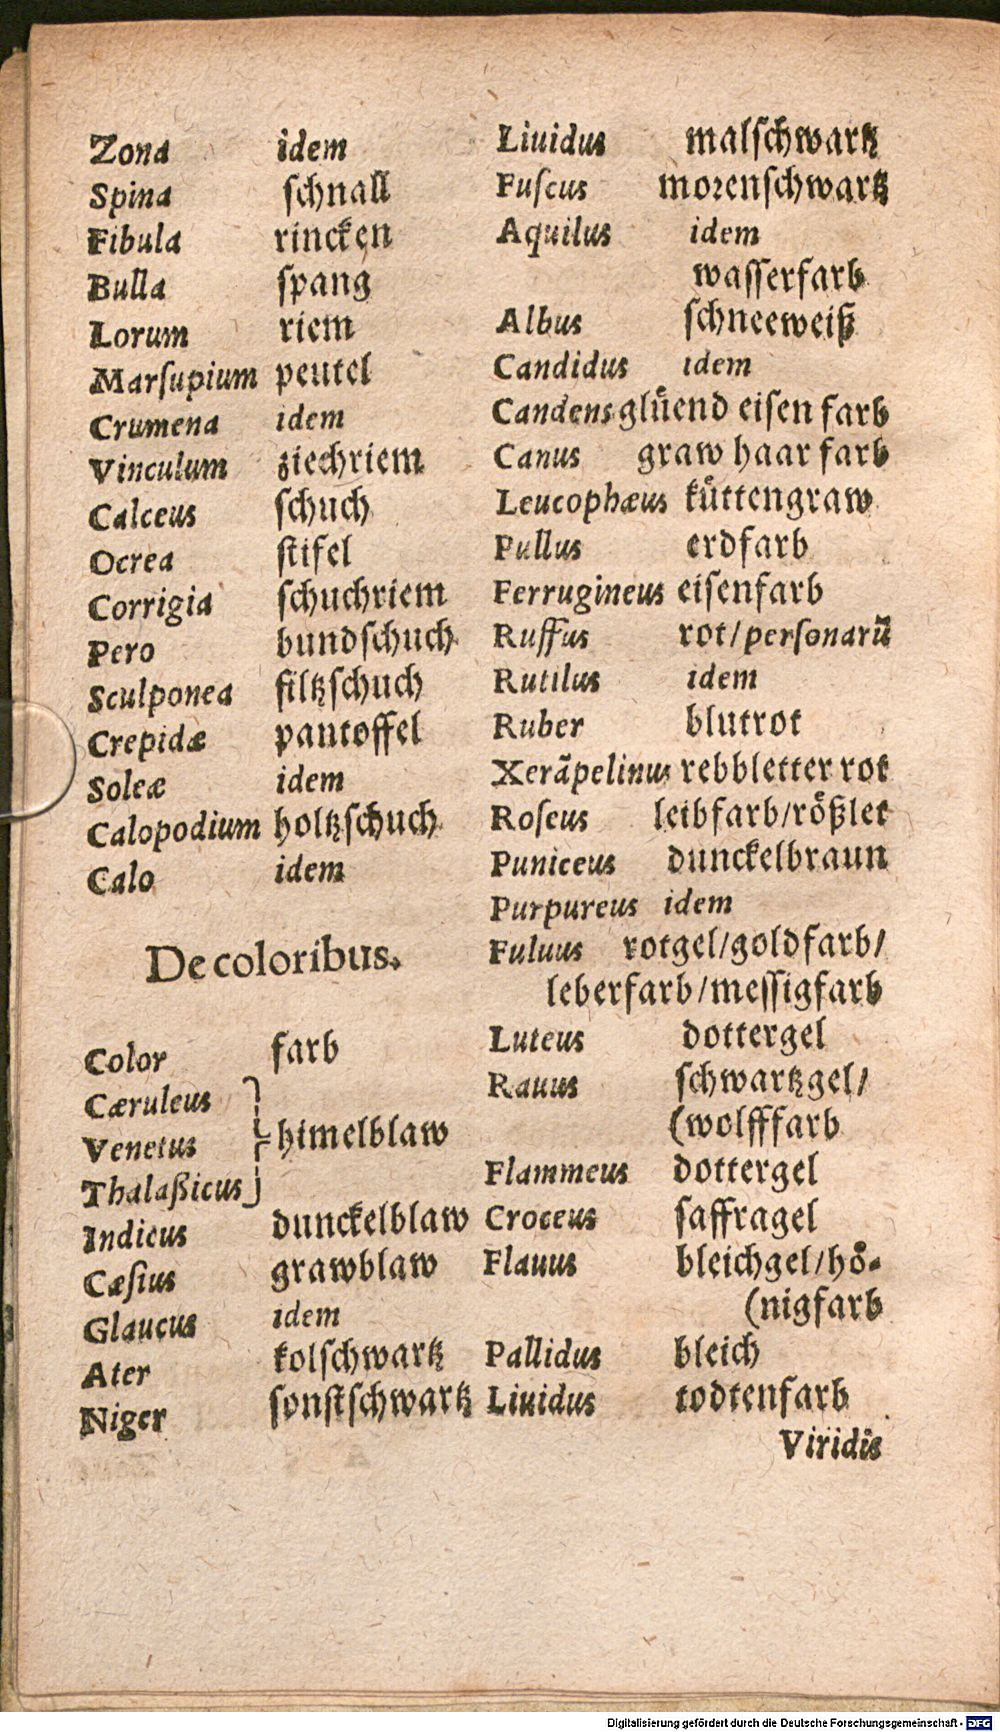 Zona idem
Spina ſchnall
Fibula rincken
Bulla ſpang
Lorum riem
Marſupium peutel
Crumena idem
Vinculum ziechriem
Calceus ſchuch
Ocrea ſtifel
Corrigia ſchuchriem
Pero bundſchuch
Sculponea filtzſchuch
Crepidæ pantoffel
Soleæ idem
Calopodium holtzſchuch
Calo idem
De coloribus.
Color farb
Cæruleus
Venetus himelblaw
Thalaßicus
Indicus dunckelblaw
Cæſius grawblaw
Glaucus idem
Ater kolſchwartz
Niger ſonſtſchwartz
Liuidus malſchwartz
Fuſcus moꝛenſchwartz
Aquilus idem
waſſerfarb
Albus ſchneeweiß
Candidus idem
Candens glüend eiſen farb
Canus graw haar farb
Leucophæus küttengraw
Pullus erdfarb
Ferrugineus eiſenfarb
Ruffus rot/perſonarū
Rutilus idem
Ruber blutrot
Xerãpelinus rebbletter rot
Roſeus leibfarb/rößlet
Puniceus dunckelbraun
Purpureus idem
Fuluus rotgel/goldfarb/
leberfarb/meſſigfarb
Luteus dottergel
Rauus ſchwartzgel/
(wolfffarb
Flammeus dottergel
Croceus ſaffragel
Flauus bleichgel/hö⸗
(nigfarb
Pallidus bleich
Liuidus todtenfarb
Viridis
Digitalisierung gefördert durch die Deutsche Forschungsgemeinschaft - DFG